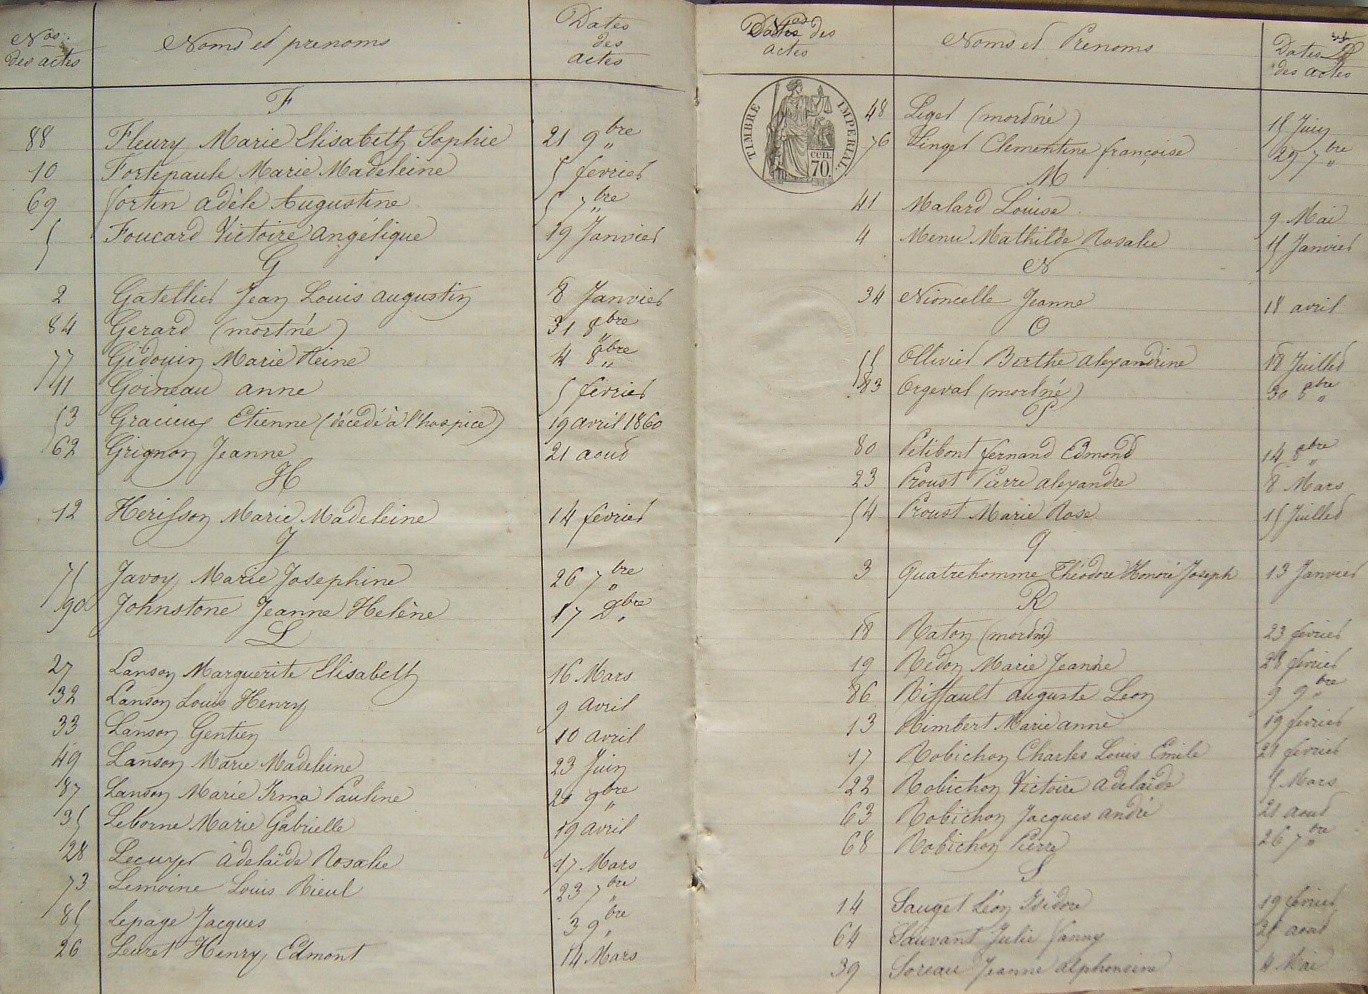 Nos des actes
Noms et prenoms
Dates des actes
F
88 Fleury Marie Elisabeth Sophie 21 9bre
10 Fortepaule Marie Madeleine 5 fevrier
69 fortin adèle Augustine 5 7bre
5 Foucard Victoire Angélique 19 Janvier
G
2 Gatellier Jean Louis augustin 8 Janvier
84 Gerard (mort né) 31 8bre
77 Gidouin Marie Reine 4 8bre
11 Goineau anne 5 fevrier
53 Etienne (décédé à l'hospice) 19 avril 1860
62 Grignon Jeanne 21 aoud
H
12 Herisson Marie Madeleine 14 fevrier
J
75 Javoy Marie Josephine 26 7bre
90 Johnstone Jeanne Helène 17 9bre
L
27 Lanson Marguerite Elisabeth 16 Mars
32 Lanson Louis Henry 9 avril
33 Lanson Gentien 10 avril
49 Lanson Marie Madeleine 23 Juin
87 Lanson Marie Irma Pauline 20 9bre
35 Leborne Marie Gabrielle 19 avril
28 Lecuyer adelaïde Rosalie 17 Mars
73 Lemoine Louis Rieul 23 7bre
85 Lepage Jacques 3 9bre
26 Leuret Henry Edmont 14 Mars
Nos des actes
Noms et Prenoms
Dates des actes
TIMBRE IMPERIAL
cen. 70.
48 Liget (mordné) 15 Juin
76 Linget Clementine françoise 29 7bre
M
41 Malard Louise 9 Mai
4 Menu Mathilde Rosalie 15 Janvier
N
34 Nioncelle Jeanne 18 avril
O
55 Ollivier Berthe alexandrine 18 Juilled
83 Orgeval (mortné) 30 8bre
P
80 Petibont fernand Edmond 14 8bre
23 Proust Pierre alexandre 8 Mars
54 Proust Marie Rose 15 Juilled
Q
3 Quatrehomme Théodore Honoré Joseph 13 Janvier
R
18 Raton (mordné) 23 fevrier
19 Redon Marie Jeanne 28 fevrier
86 Riffault auguste Leon 9 9bre
13 Rimbert Marie anne 19 fevrier
17 Robichon Charles Louis Emile 20 fevrier
22 Robichon Victoire adelaide 5 Mars
63 Robichon Jacques andré 21 aoud
68 Robichon Pierre 26 7bre
S
14 Sauget Léon Isidore 19 fevrier
64 Sauvant Julie fanny 25 aoud
39 Soreau Jeanne alphonsine 4 Mai